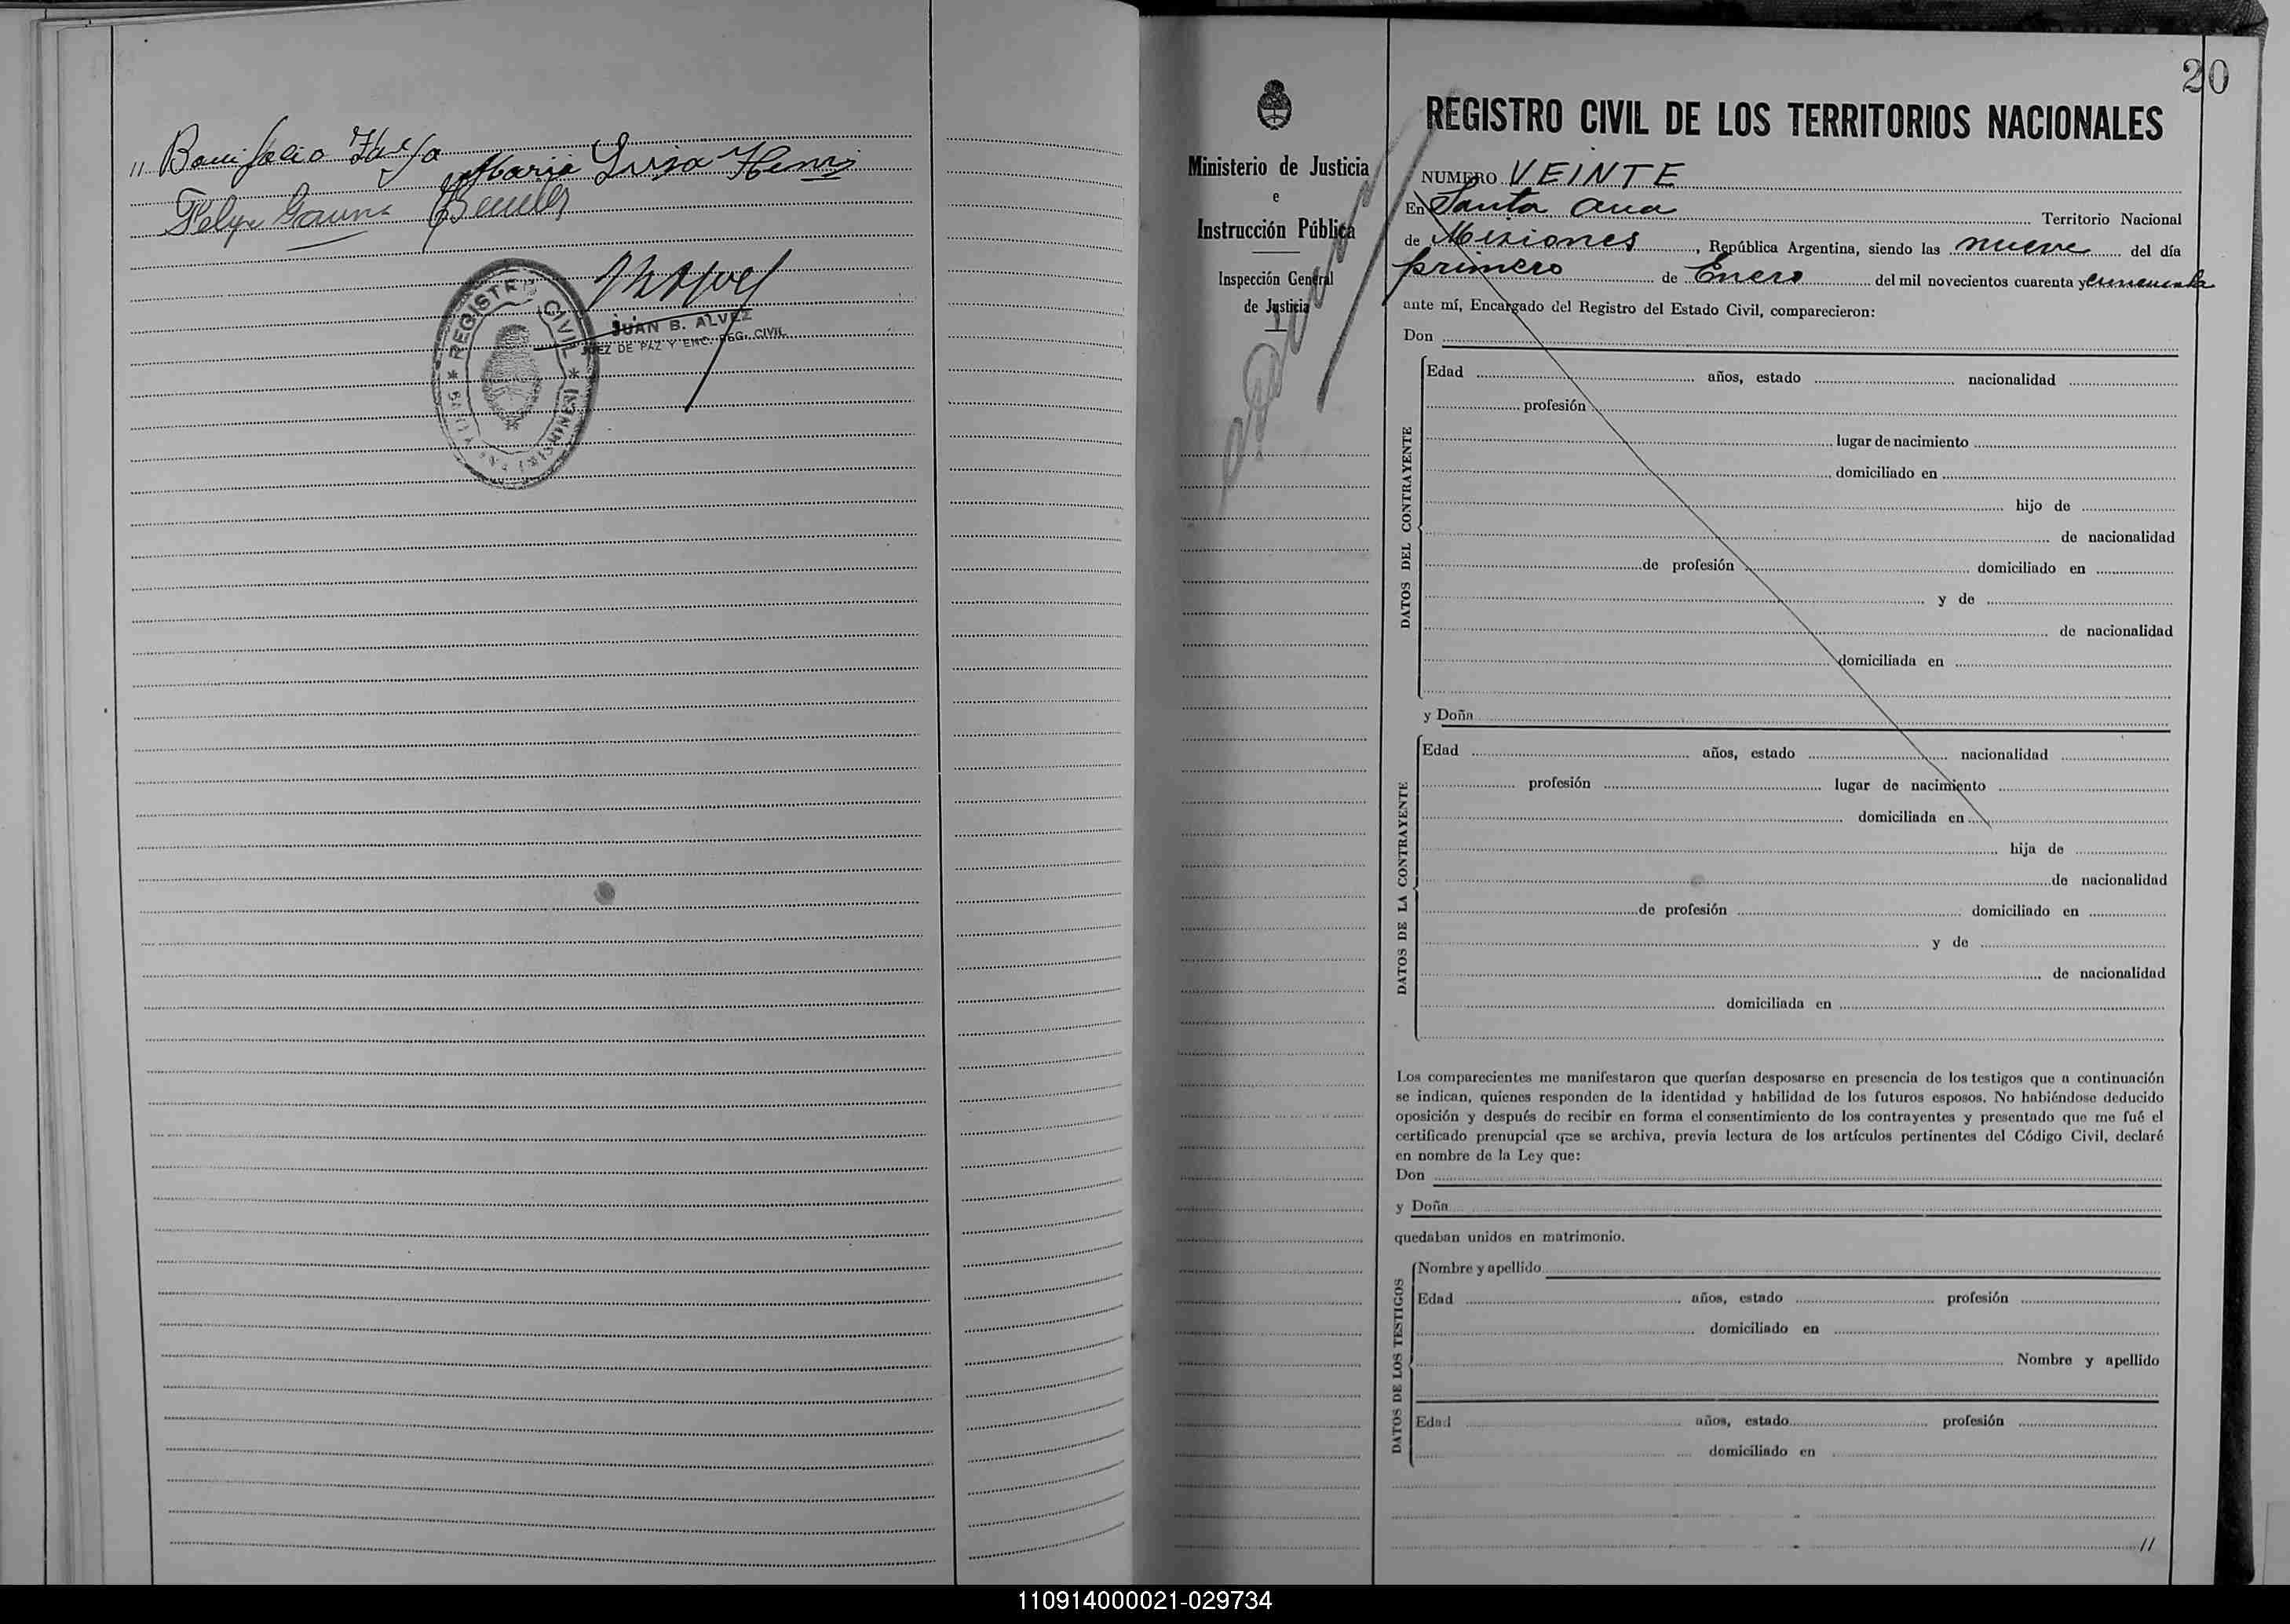 " Bonifacio
Maria Luisa Henri
Felipe Gauna
JUAN B. ALVEZ
JUEZ DE PAZ Y ENC. REG. CIVIL
REGISTRO CIVIL
20
Ministerio de Justicia
e
Instrucción Pública
Inspección General
de Justicia
REGISTRO CIVIL DE LOS TERRITORIOS NACIONALES
NUMERO VEINTE
En Santa Ana Territorio Nacional
de Misiones, República Argentina, siendo las nueve del día
primero de Enero del mil novecientos cuarenta y cincuenta
ante mí, Encargado del Registro del Estado Civil, comparecieron:
Don
DATOS DEL CONTRAYENTE
Edad años, estado nacionalidad
profesión
lugar de nacimiento
domiciliado en
hijo de
de nacionalidad
de profesión domiciliado en
y de
de nacionalidad
domiciliada en
y Doña
DATOS DE LA CONTRAYENTE
Edad años, estado nacionalidad
profesión lugar de nacimiento
domiciliada en
hija de
de nacionalidad
de profesión domiciliado en
y de
de nacionalidad
domiciliada en
Los comparecientes me manifestaron que querían desposarse en presencia de los testigos que a continuación
se indican, quienes responden de la identidad y habilidad de los futuros esposos. No habiéndose deducido
oposición y después de recibir en forma el consentimiento de los contrayentes y presentado que me fué el
certificado prenupcial que se archiva, previa lectura de los artículos pertinentes del Código Civil, declaré
en nombre de la Ley que:
Don
y Doña
quedaban unidos en matrimonio.
DATOS DE LOS TESTIGOS
Nombre y apellido
Edad años, estado profesión
domiciliado en
Nombre y apellido
Edad años, estado profesión
domiciliado en
//
110914000021-029734